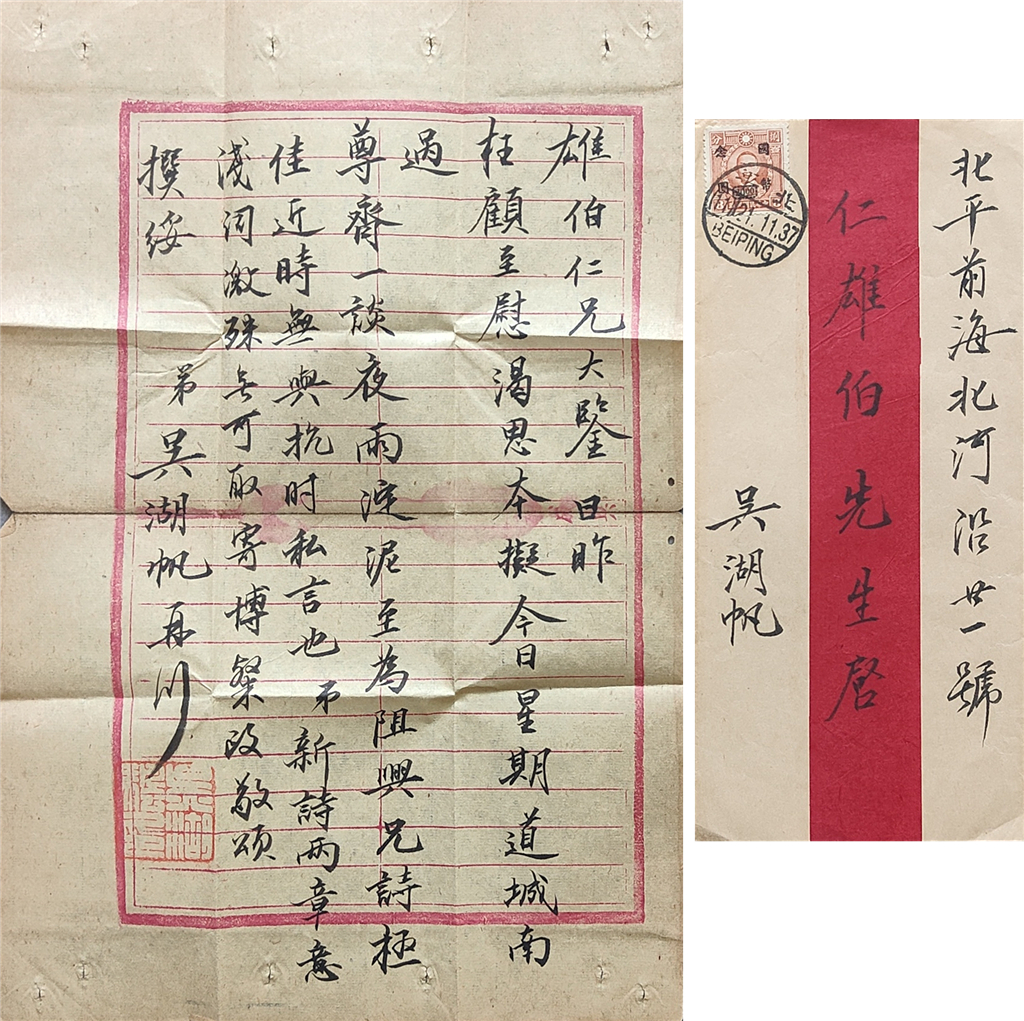 雄伯仁兄大鑒日昨
枉顧至慰渴思本擬今日星期道城南
過
尊齋一談夜雨淀泥至為阻興兄詩極
佳近時無與抗时私言也弟新詩兩章意
淺词激殊無可取寄博粲政敬颂
撰綏
弟吴湖帆再
北平前海北河沿廿一號
仁雄伯先生啓
吴湖帆
國
幣
21.11.37
BEIPING
北